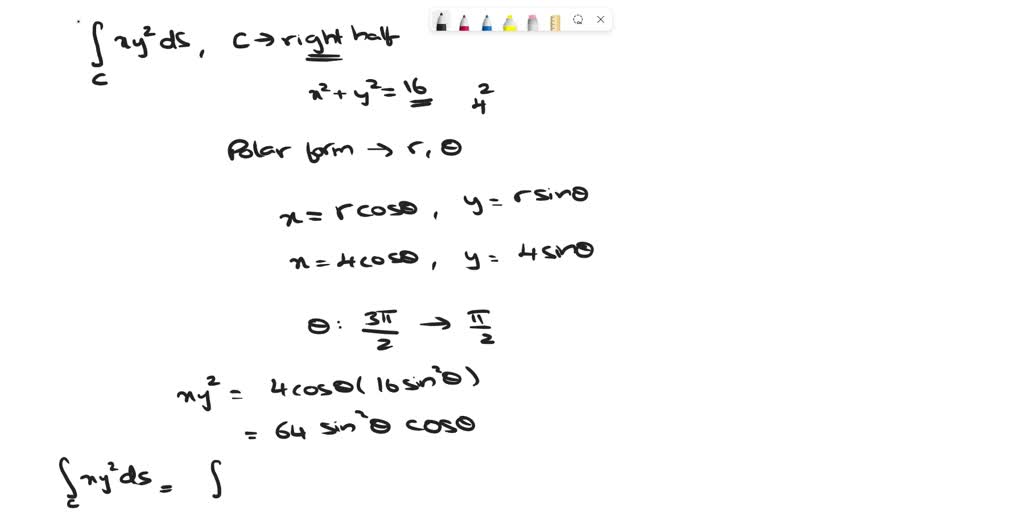 ∫_C xy² ds, C → right half
x² + y² = 16 4²
Polar form → r, θ
x = r cosθ, y = r sinθ
x = 4cosθ, y = 4sinθ
θ: 3π/2 → π/2
xy² = 4cosθ(16sin²θ)
= 64 sin²θ cosθ
∫_C xy² ds = ∫